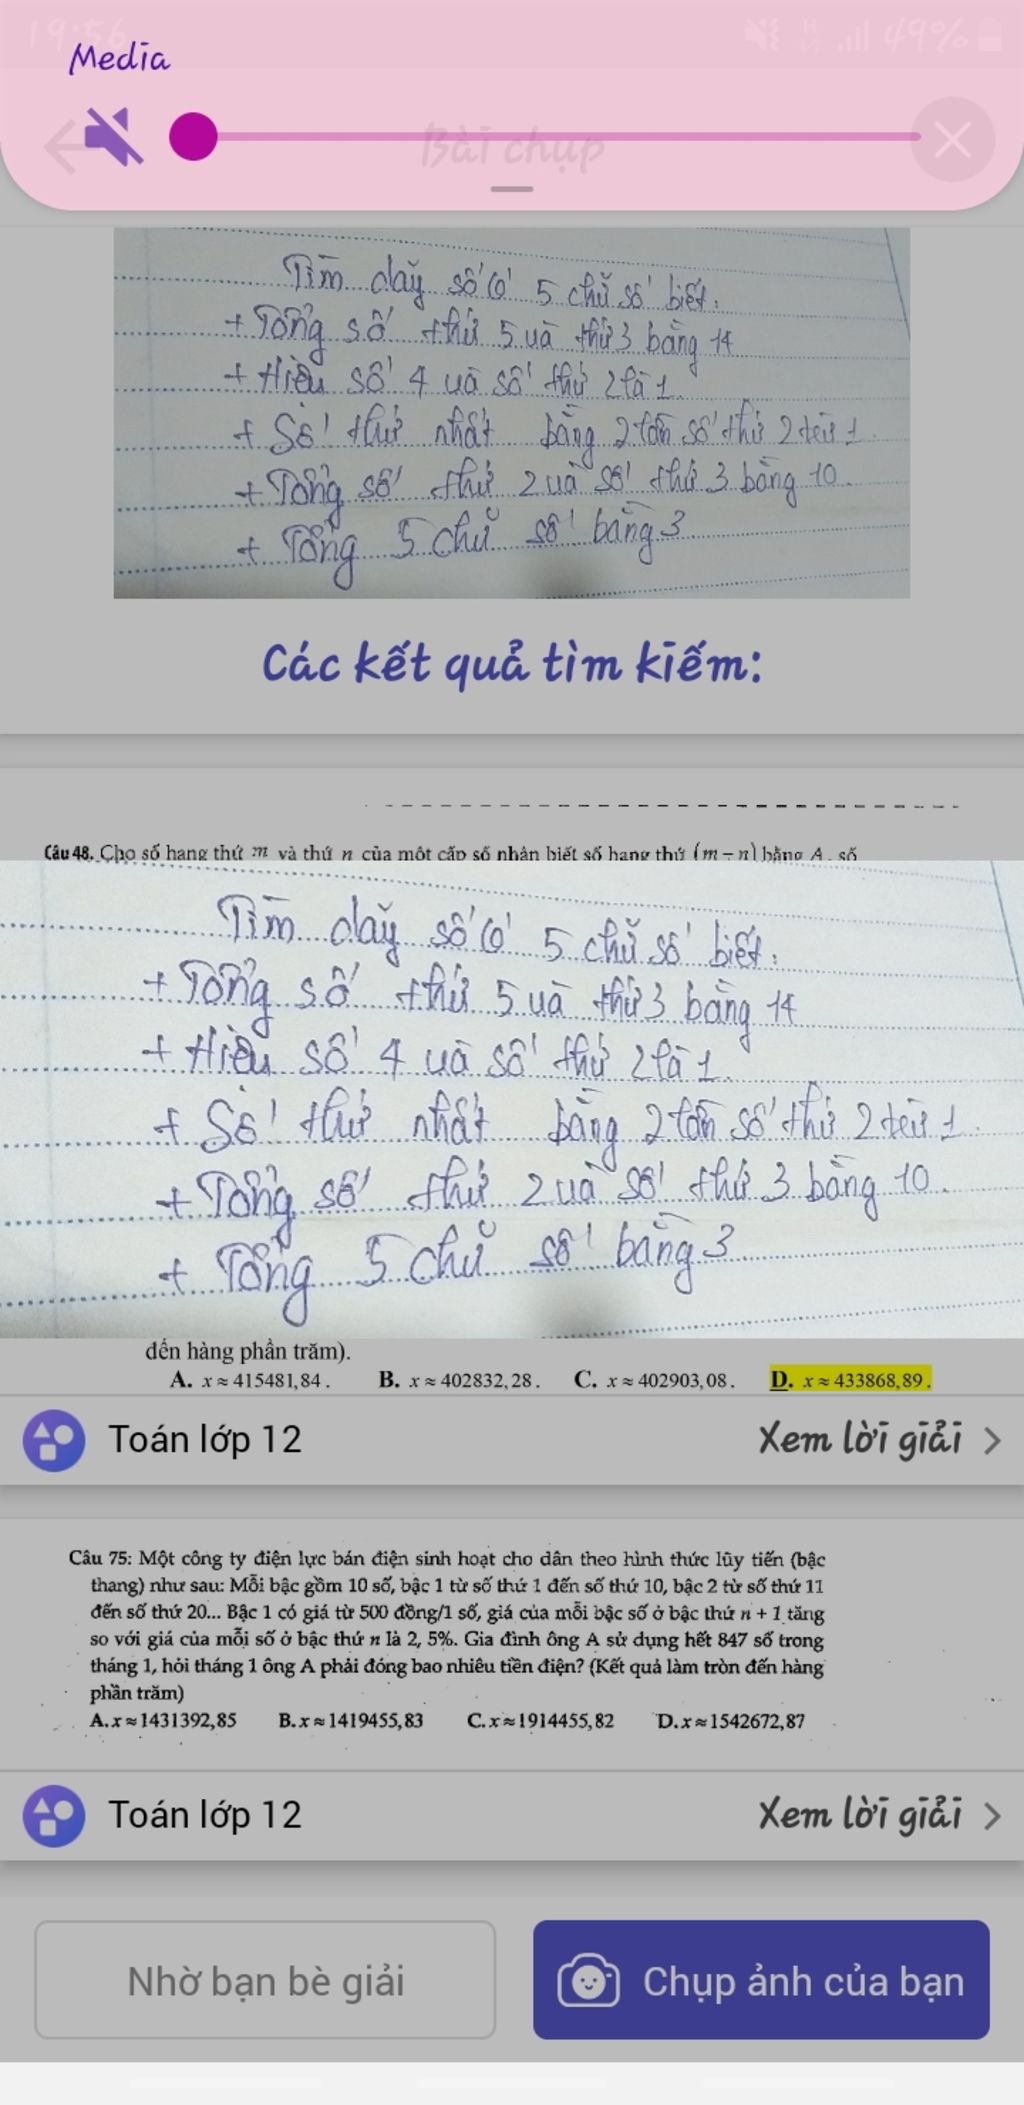 19:56
49%
Media
Bài chụp
Tìm dãy số có 5 chữ số biết:
+ Tổng số thứ 5 và thứ 3 bằng 14
+ Hiệu số 4 và số thứ 2 là 1.
+ Số thứ nhất bằng 2 lần số thứ 2 trừ 1.
+ Tổng số thứ 2 và số thứ 3 bằng 10.
+ Tổng 5 chữ số bằng 3
Các kết quả tìm kiếm:
Câu 48. Cho số hạng thứ m và thứ n của một cấp số nhân biết số hạng thứ (m − n) bằng A, số
Tìm dãy số có 5 chữ số biết:
+ Tổng số thứ 5 và thứ 3 bằng 14
+ Hiệu số 4 và số thứ 2 là 1.
+ Số thứ nhất bằng 2 lần số thứ 2 trừ 1.
+ Tổng số thứ 2 và số thứ 3 bằng 10.
+ Tổng 5 chữ số bằng 3
đến hàng phần trăm).
A. x ≈ 415481,84. B. x ≈ 402832,28. C. x ≈ 402903,08. D. x ≈ 433868,89.
Toán lớp 12 Xem lời giải
Câu 75: Một công ty điện lực bán điện sinh hoạt cho dân theo hình thức lũy tiến (bậc
thang) như sau: Mỗi bậc gồm 10 số, bậc 1 từ số thứ 1 đến số thứ 10, bậc 2 từ số thứ 11
đến số thứ 20... Bậc 1 có giá từ 500 đồng/1 số, giá của mỗi bậc số ở bậc thứ n + 1 tăng
so với giá của mỗi số ở bậc thứ n là 2, 5%. Gia đình ông A sử dụng hết 847 số trong
tháng 1, hỏi tháng 1 ông A phải đóng bao nhiêu tiền điện? (Kết quả làm tròn đến hàng
phần trăm)
A. x ≈ 1431392,85 B. x ≈ 1419455,83 C. x ≈ 1914455,82 D. x ≈ 1542672,87
Toán lớp 12 Xem lời giải
Nhờ bạn bè giải Chụp ảnh của bạn